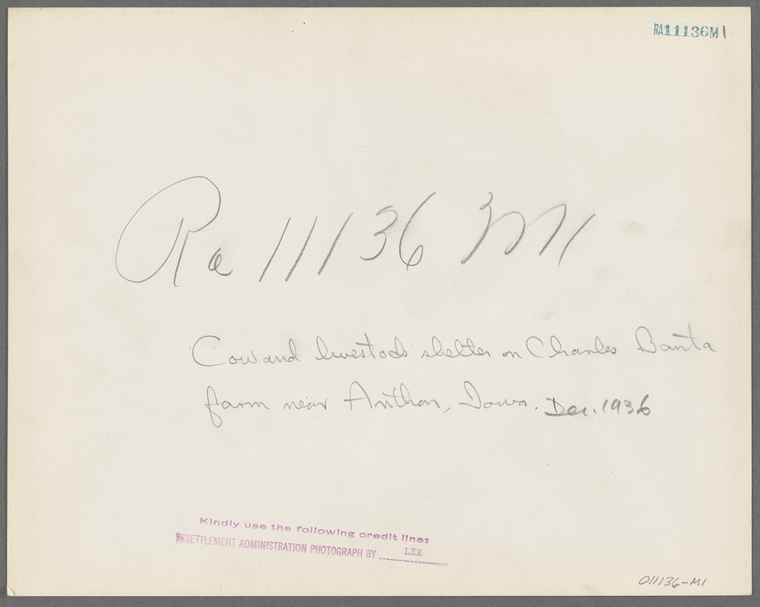 RA11136M1
Ra 11136 M1
Cow and livestock shelter on Charles Banta
farm near Anthon, Iowa. Dec. 1936
Kindly use the following credit lines
RESETTLEMENT ADMINISTRATION PHOTOGRAPH BY LEE
011136-M1